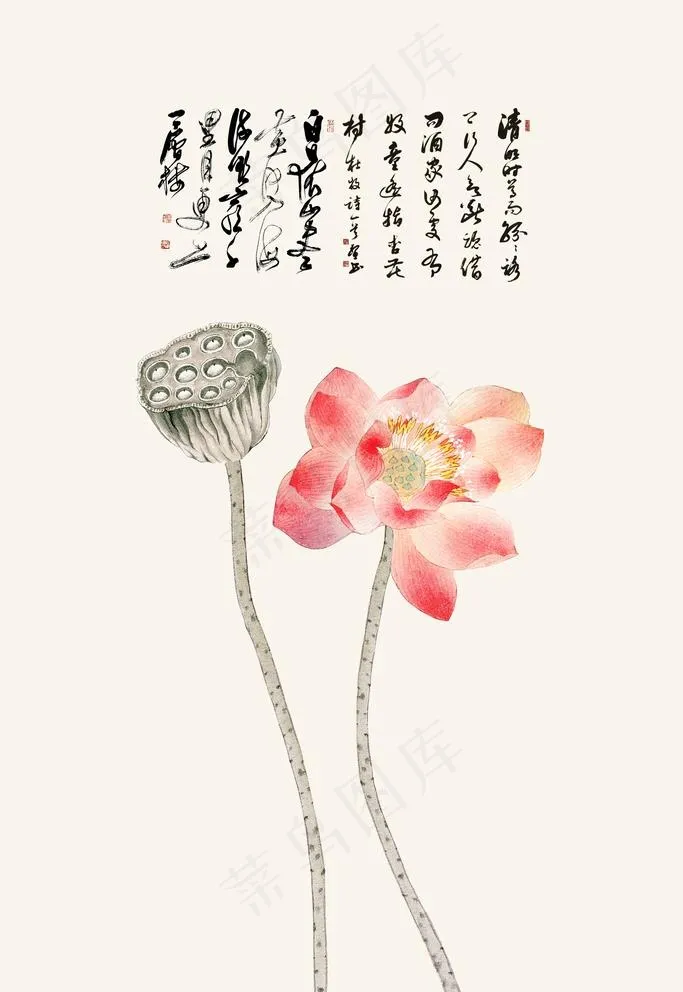 清明时节雨纷〻路
上行人欲断魂借
问酒家何处有
牧童遥指杏花
村 杜牧詩一首
白日依山尽
黄河入海
流欲穷千
里目更上
一層楼
菜鸟图库
菜鸟图库
菜鸟图库